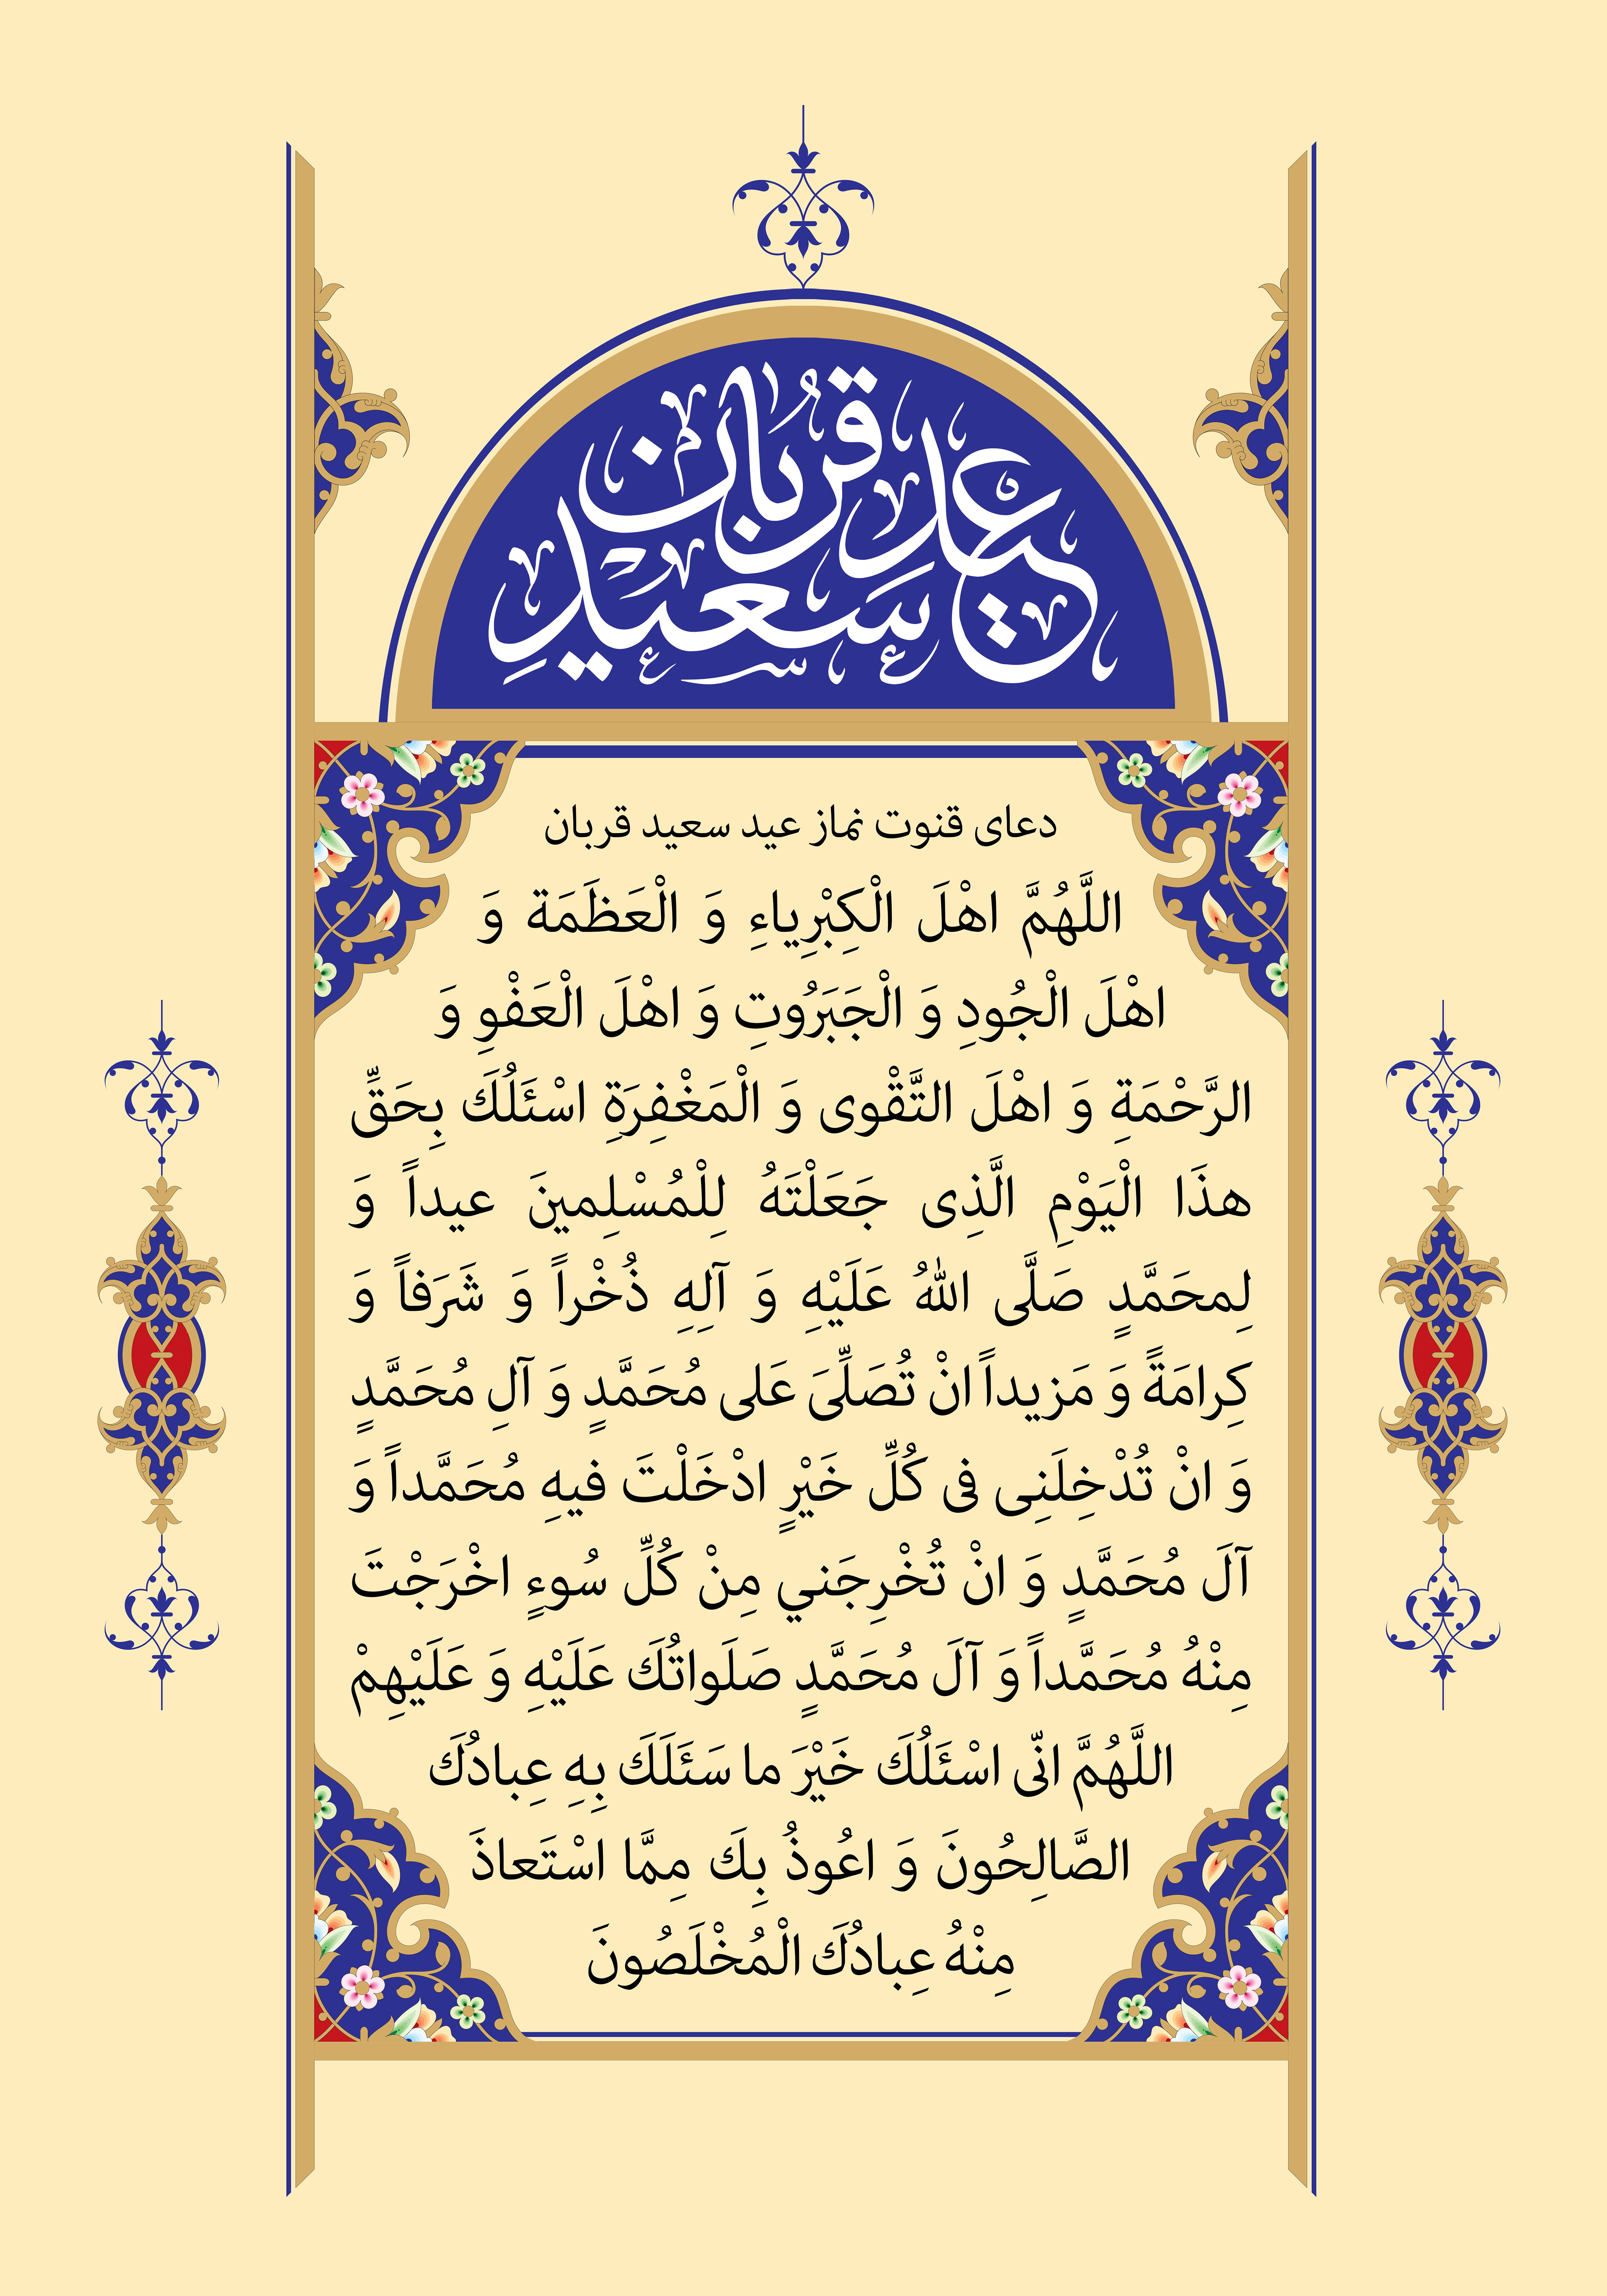 عید قربان
سعید
دعای قنوت نماز عید سعید قربان
اللَّهُمَّ اهْلَ الْكِبْرِياءِ وَ الْعَظَمَة وَ
اهْلَ الْجُودِ وَ الْجَبَرُوتِ وَ اهْلَ الْعَفْوِ وَ
الرَّحْمَةِ وَ اهْلَ التَّقْوى وَ الْمَغْفِرَةِ اسْئَلُكَ بِحَقِّ
هذَا الْيَوْمِ الَّذِى جَعَلْتَهُ لِلْمُسْلِمينَ عيداً وَ
لِمحَمَّدٍ صَلَّى اللهُ عَلَيْهِ وَ آلِهِ ذُخْراً وَ شَرَفاً وَ
كِرامَةً وَ مَزيداً انْ تُصَلِّىَ عَلى مُحَمَّدٍ وَ آلِ مُحَمَّدٍ
وَ انْ تُدْخِلَنِى فى كُلِّ خَيْرٍ ادْخَلْتَ فيهِ مُحَمَّداً وَ
آلَ مُحَمَّدٍ وَ انْ تُخْرِجَني مِنْ كُلِّ سُوءٍ اخْرَجْتَ
مِنْهُ مُحَمَّداً وَ آلَ مُحَمَّدٍ صَلَواتُكَ عَلَيْهِ وَ عَلَيْهِمْ
اللَّهُمَّ انّى اسْئَلُكَ خَيْرَ ما سَئَلَكَ بِهِ عِبادُكَ
الصَّالِحُونَ وَ اعُوذُ بِكَ مِمَّا اسْتَعاذَ
مِنْهُ عِبادُكَ الْمُخْلَصُونَ